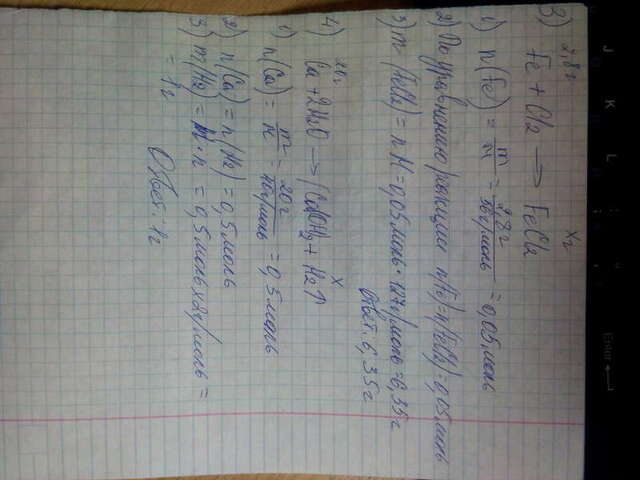 3) 2,8г Xг
Fe + Cl2 → FeCl2
1) n(Fe) = m/M = 2,8г/56г/моль = 0,05моль
2) По уравнению реакции n(Fe)=n(FeCl2)=0,05моль
3) m(FeCl2) = n M = 0,05моль · 127г/моль = 6,35г
Ответ: 6,35г
4) 20г X
Ca + 2H2O → Ca(OH)2 + H2↑
1) n(Ca) = m/M = 20г/40г/моль = 0,5моль
2) n(Ca) = n(H2) = 0,5моль
3) m(H2) = M · n = 0,5моль x 2г/моль =
= 1г
Ответ: 1г
J
K
L
Enter